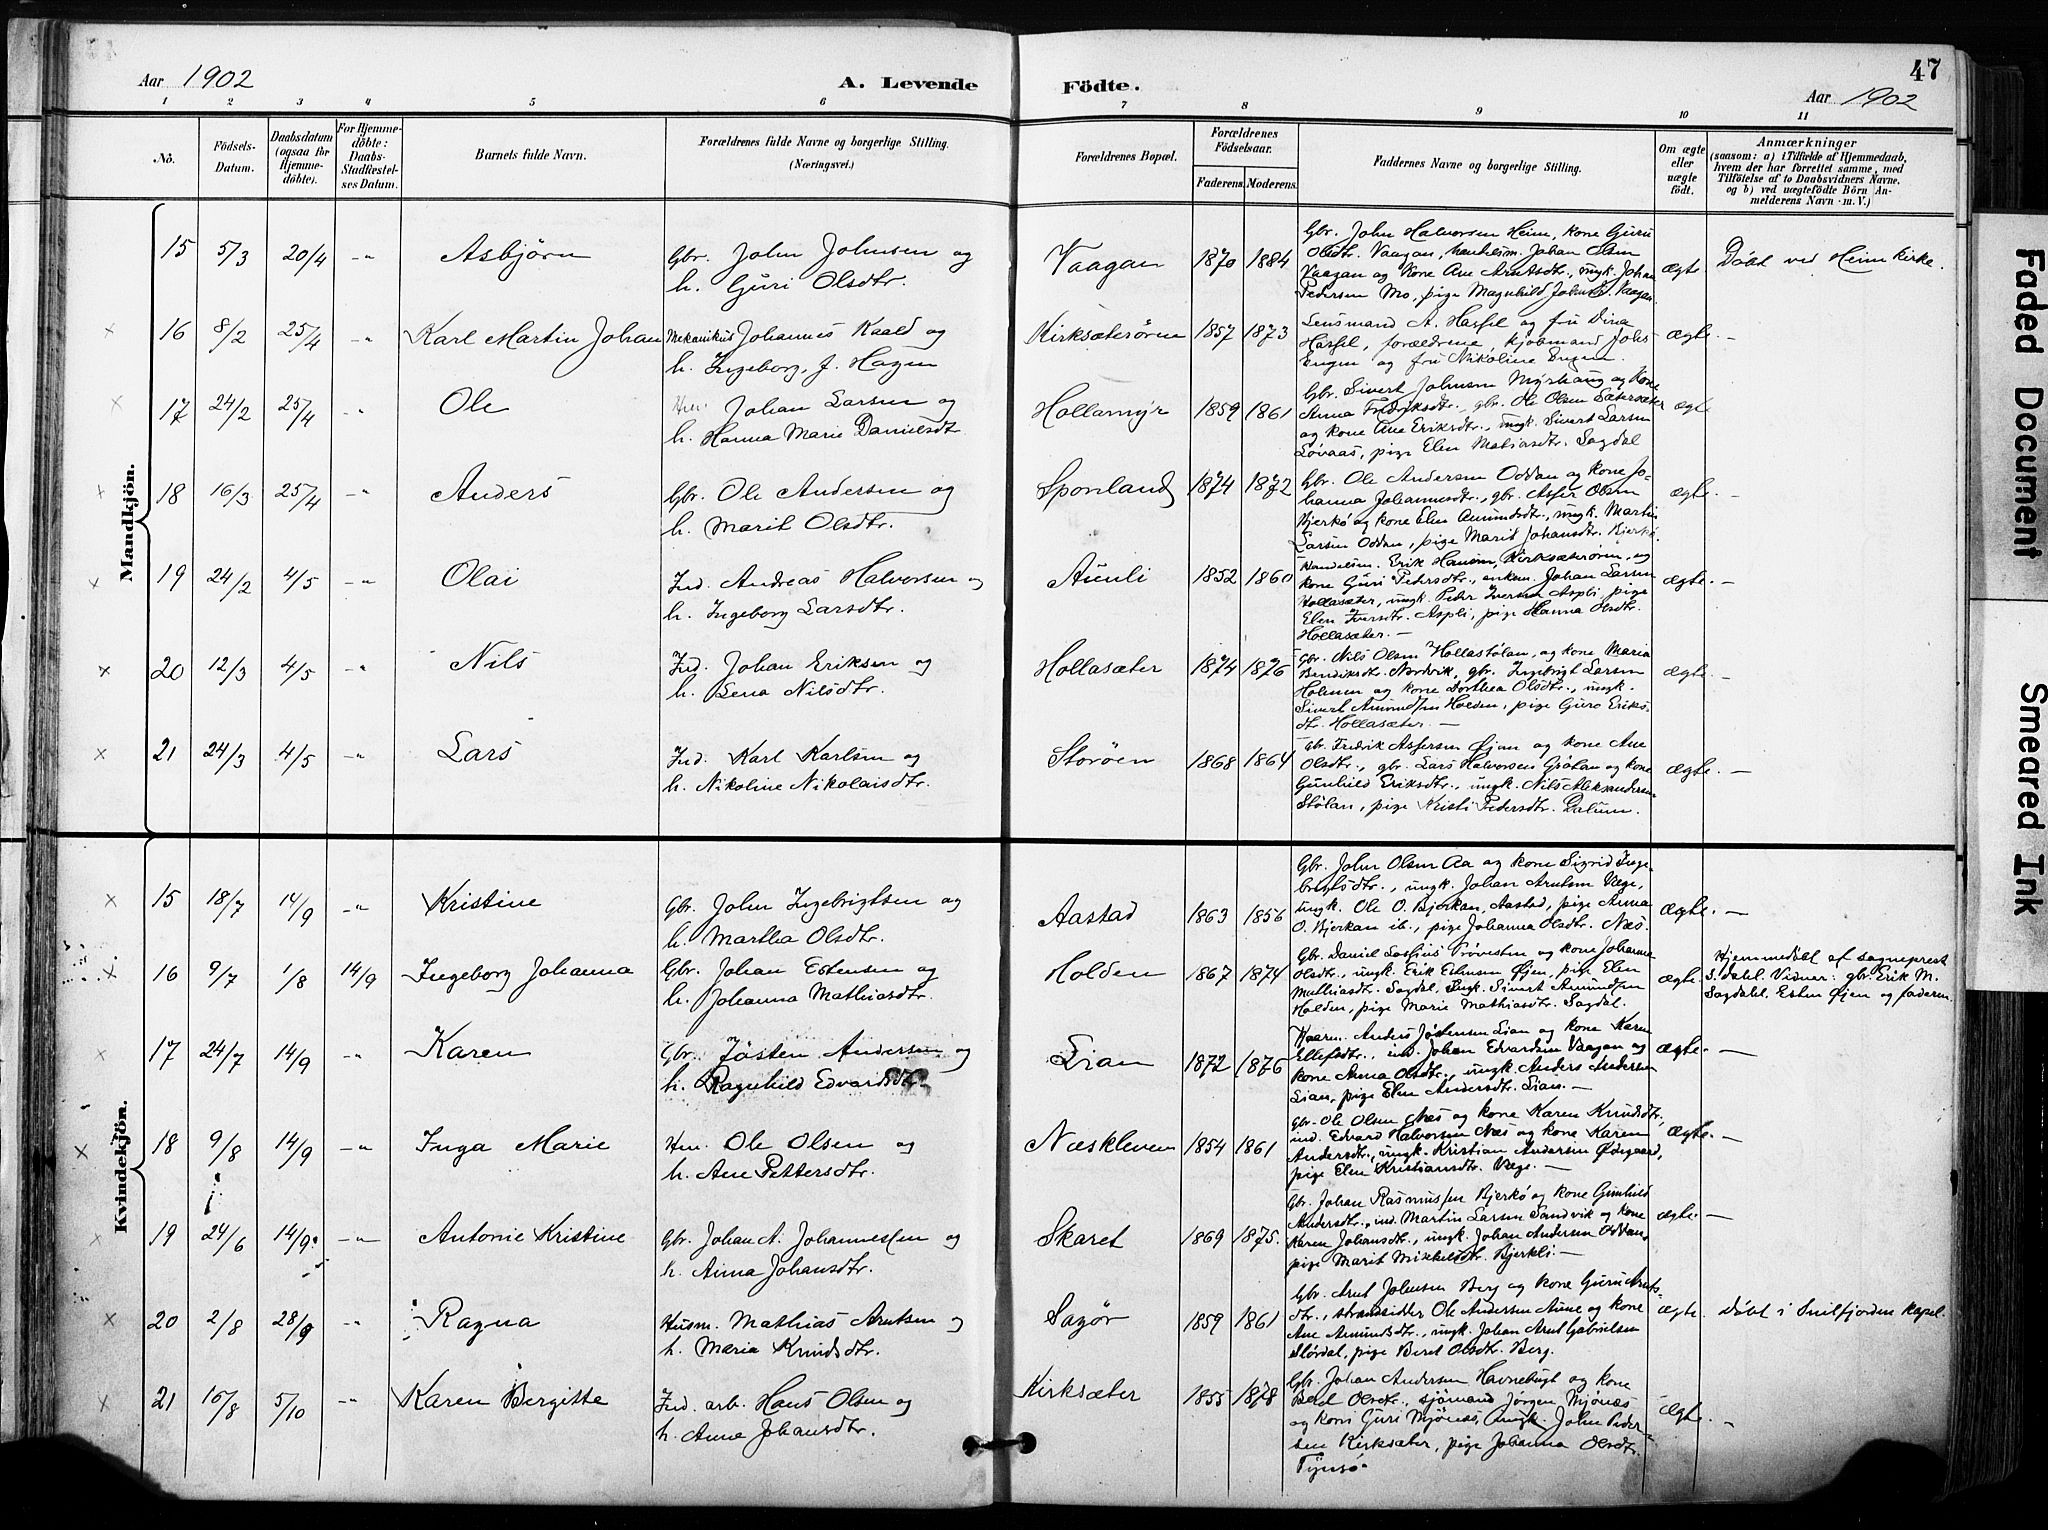 Aar 1902
A. Levende
Födte.
Aar 1902
47
1 2 3 4 5 6 7 8 9 10 11
No.
Födsels-
Datum.
Daabsdatum
(ogsaa for
Hjemme-
döbte).
For Hjemme-
döbte:
Daabs-
Stadfestel-
ses Datum.
Barnets fulde Navn.
Forældrenes fulde Navne og borgerlige Stilling.
(Næringsvei.)
Forældrenes Bopæl.
Forældrenes
Födselsaar.
Faderens. Moderens.
Faddernes Navne og borgerlige Stilling.
Om ægte
eller
uægte
födt.
Anmærkninger
(saasom: a) i Tilfælde af Hjemmedaab,
hvem der har forrettet samme, med
Tilföielse af to Daabsvidners Navne,
og b) ved uægtefödte Börn An-
melderens Navn m. V.)
Mandkjön.
15 5/3 20/4 -"- Asbjørn
Gbr. John Johnsen og
h. Guri Olsdtr.
Vaagan 1870 1884
Gbr. John Halvorsen Heim, kone Guru
Olsdtr. Vaagan, Johan
Vaagan og kone Ane Arntsdtr., ungk. Johan
Pedersen Mo, pige Magnhild Johnsd. Vaagan.
ægte Døbt ved Heim kirke.
16 8/2 25/4 -"- Karl Martin Johan
Mekanikus Johannes Kaald og
h. Ingeborg, f. Hagen
Kirksæterøren 1857 1873
Lensmand A. Hassel og fru Dina
Hassel, forældrene, kjøbmand Johs
Engen og fru Nikoline Engen.
ægte. —
17 24/2 25/4 -"- Ole
Johan Larsen og
h. Hanna Marie Danielsdt
Hollamyr 1859 1861
Gbr. Sivert Johnsen Myrhaug og kone
Anna Fredriksdtr., gbr. Ole Olsen Sætersæter
og kone Ane Eriksdtr., ungk. Sivert Larsen
Løvaas, pige Elen Mathiasdtr. Sagdal
ægte
18 16/3 25/4 -"- Anders
Gbr. Ole Andersen og
h. Marit Olsdtr.
Sponland 1874 1872
Gbr. Ole Andersen Oddan og kone Jo-
hanna Johannesdtr., gbr. Asfer Olsen
Bjerkø og kone Elen Amundsdtr., ungk. Martin
Larsen Oddan, pige Marit Johansdtr. Bjerkø.
ægte. —
19 24/2 4/5 -"- Olai
Ind. Andreas Halvorsen og
h. Ingeborg Larsdtr.
Aunli 1852 1860
Handelsm. Erik Hansen, Kirksæterøren, og
kone Guri Pedersdtr., enkem. Johan Larsen
Hollasæter, ungk. Peder Iversen Aspli, pige
Elen Iversdtr. Aspli, pige Hanna Olsdtr.
Hollasæter. —
ægte. —
20 12/3 4/5 -"- Nils
Ind. Johan Eriksen og
h. Lena Nilsdtr.
Hollasæter 1874 1876
Gbr. Nils Olsen Hollastølan, og kone Maria
Bendiksdtr. Nordvik, gbr. Ingebrigt Larsen
Holmen og kone Dorthea Olsdtr., ungk.
Sivert Amundsen Holden, pige Guro Eriks-
dtr. Hollasæter. —
ægte. —
21 24/3 4/5 -"- Lars
Ind. Karl Karlsen og
h. Nikoline Nikolaisdtr.
Storøen 1868 1864
Gbr. Fredrik Assersen Øien og kone Ane
Olsdtr., gbr. Lars Halvorsen Grøtan og kone
Gunhild Eriksdtr., ungk. Nils Aleksandersen
Stølan, pige Kristi Pedersdtr. Dalum.
ægte. —
Kvindekjön.
15 18/7 14/9 -"- Kristine
Gbr. John Ingebrigtsen og
h. Martha Olsdtr.
Aastad 1863 1856
Gbr. John Olsen Aa og kone Sigrid Inge-
brigtsdtr., ungk. Johan Arntsen Væge,
ungk. Ole O. Bjerkan, Aastad, pige Anna
O. Bjerkan ib., pige Johanna Olsdtr. Næs.
ægte. —
16 9/7 1/8 14/9 Ingeborg Johanna
Gbr. Johan Estensen og
h. Johanna Mathiasdtr.
Holden 1867 1874
Gbr. Daniel og kone Johanna
Olsdtr., ungk. Erik Estensen Øien, pige Elen
Mathiasdtr. Sagdal, ungk. Sivert Amundsen
Holden, pige Marie Mathiasdtr. Sagdal.
ægte. Hjemmedøbt af sogneprest
S. Dahl. Vidner: gbr. Erik M.
Sagdahl, Esten Øien og faderen.
17 24/7 14/9 -"- Karen
Gbr. Jösten Andersen og
h. Ragnhild Edvardsdtr.
Lian 1872 1876
Anders Jöstensen Lian og kone Karen
Ellefsdtr., ind. Johan Edvardsen Vaagan og
kone Anna Olsdtr., ungk. Anders Andersen
Lian, pige Elen Andersdtr. Lian. —
ægte. —
18 9/8 14/9 -"- Inga Marie
Hm. Ole Olsen og
h. Ane Pettersdtr.
Næskleven 1854 1861
Gbr. Ole Olsen Næs og kone Karen Knudsdtr.,
ind. Edvard Halvorsen Næs og kone Karen
Andersdtr., ungk. Kristian Andersen Ødegaard,
pige Elen Kristiansdtr. Væge. —
ægte. —
19 24/6 14/9 -"- Antonie Kristine
Gbr. Johan A. Johannessen og
h. Anna Johansdtr.
Skaret 1869 1875.
Gbr. Johan Rasmussen Bjerkø og kone Gunhild
Andersdtr., ind. Martin Larsen Sandvik og kone
Karen Johansdtr., ungk. Johan Andersen Oddan,
pige Marit Mikkelsdtr. Bjerkli. —
ægte —
20 2/8 28/9 -"- Ragna
Husm. Mathias Arntsen og
h. Maria Knudsdtr.
Sagør 1859 1861
Gbr. Arnt Johnsen Berg og kone Guru Arnts-
dtr., strandsidder Ole Andersen Aune og kone
Ane Amundsdtr., ungk. Johan Arnt Gabrielsen
Slørdal, pige Beret Olsdtr. Berg.
ægte. Døbt i Snilfjorden kapel.
21 16/8 5/10 -"- Karen Bergitte
Ind. arb. Hans Olsen og
h. Anne Johansdtr.
Kirksæter 1855 1878
Gbr. Johan Andersen Havnebugt og kone
Olsdtr., sjömand Jørgen Mjönæs
og kone Guri Mjönæs, ungk. John Peder-
sen Kirksæter, pige Johanna Olsdtr.
ægte. —
Faded Document
Smeared Ink